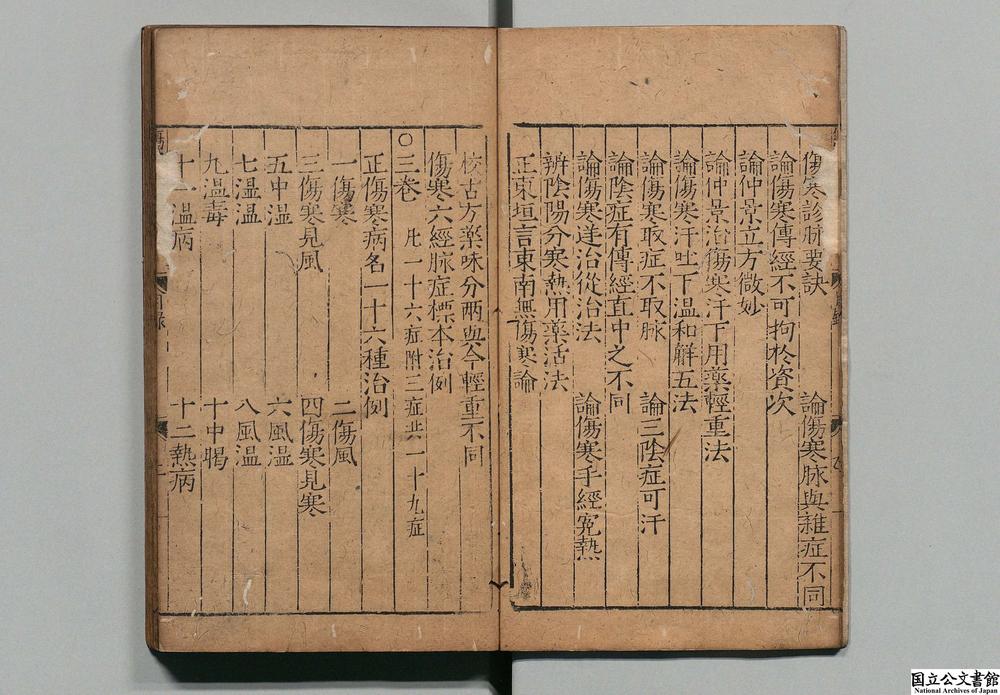 傷寒診脉要訣　論傷寒脉與雜症不同
論傷寒傳經不可拘於資次
論仲景立方微妙
論仲景治傷寒汗下用藥輕重法
論傷寒汗吐下温和觧五法
論傷寒取症不取脉　論三陰症可汗
論陰症有傳經直中之不同
論傷寒逆治從治法　論傷寒手經寃熱
辨陰陽分寒熱用藥活法
正東垣言東南無傷寒論
校古方藥味分兩與今輕重不同
傷寒六經脉症標本治例
○三卷　此一十六症附三症共一十九症
正傷寒病名一十六種治例
一傷寒　二傷風
三傷寒見風　四傷寒見寒
五中湿　六風温
七温温　八風湿
九温毒　十中暍
十一温病　十二熱病
目錄
国立公文書館
National Archives of Japan